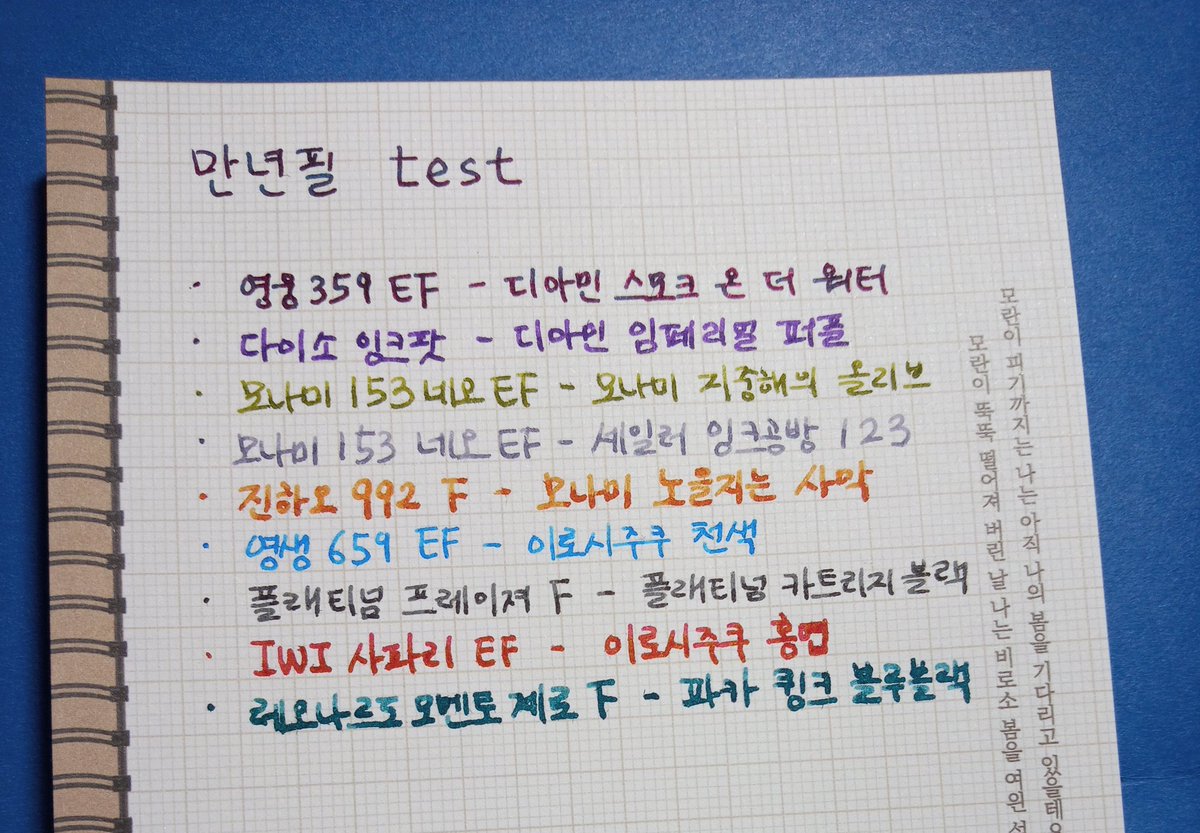 만년필 test
· 영웅 359 EF - 디아민 스모크 온 더 워터
· 다이소 잉크팟 - 디아민 임페리얼 퍼플
· 모나미 153 네오 EF - 모나미 지중해의 올리브
· 모나미 153 네오 EF - 세일러 잉크공방 123
· 진하오 992 F - 모나미 노을지는 사막
· 영생 659 EF - 이로시주쿠 천색
· 플래티넘 프레이져 F - 플래티넘 카트리지 블랙
· IWI 사파리 EF - 이로시주쿠 홍엽
· 레오나르도 모멘토 제로 F - 파카 큉크 블루블랙
모란이 피기까지는 나는 아직 나의 봄을 기다리고 있을테요
모란이 뚝뚝 떨어져 버린 날 나는 비로소 봄을 여읜